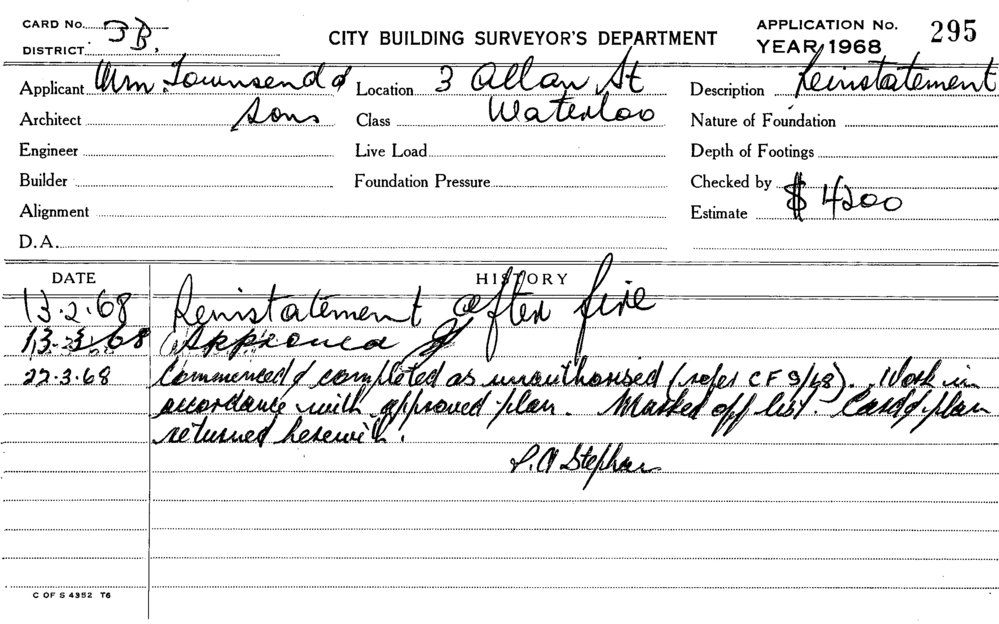 CARD No. 3B.
DISTRICT
CITY BUILDING SURVEYOR'S DEPARTMENT
APPLICATION No. 295
YEAR, 1968
Applicant Wm. Townsend &
Sons
Location 3 Allan St
Waterloo
Description Reinstatement
Architect
Class
Nature of Foundation
Engineer
Live Load
Depth of Footings
Builder
Foundation Pressure
Checked by
Alignment
Estimate $ 4200
D.A.
DATE
HISTORY
13.2.68 Reinstatement after fire
13.3.68 Approved
22.3.68 Commenced & completed as unauthorised (refer CF 9/68). Work in
accordance with approved plan. Marked off list. Card & plan
returned herewith.
Stephen
C OF S 4352 T6